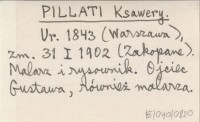 PILLATI Ksawery.
Ur. 1843 (Warszawa),
zm. 31 I 1902 (Zakopane).
Malarz i rysownik. Ojciec
Gustawa, również malarza.